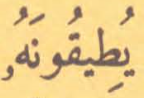 يُطِيقُونَهُۥ